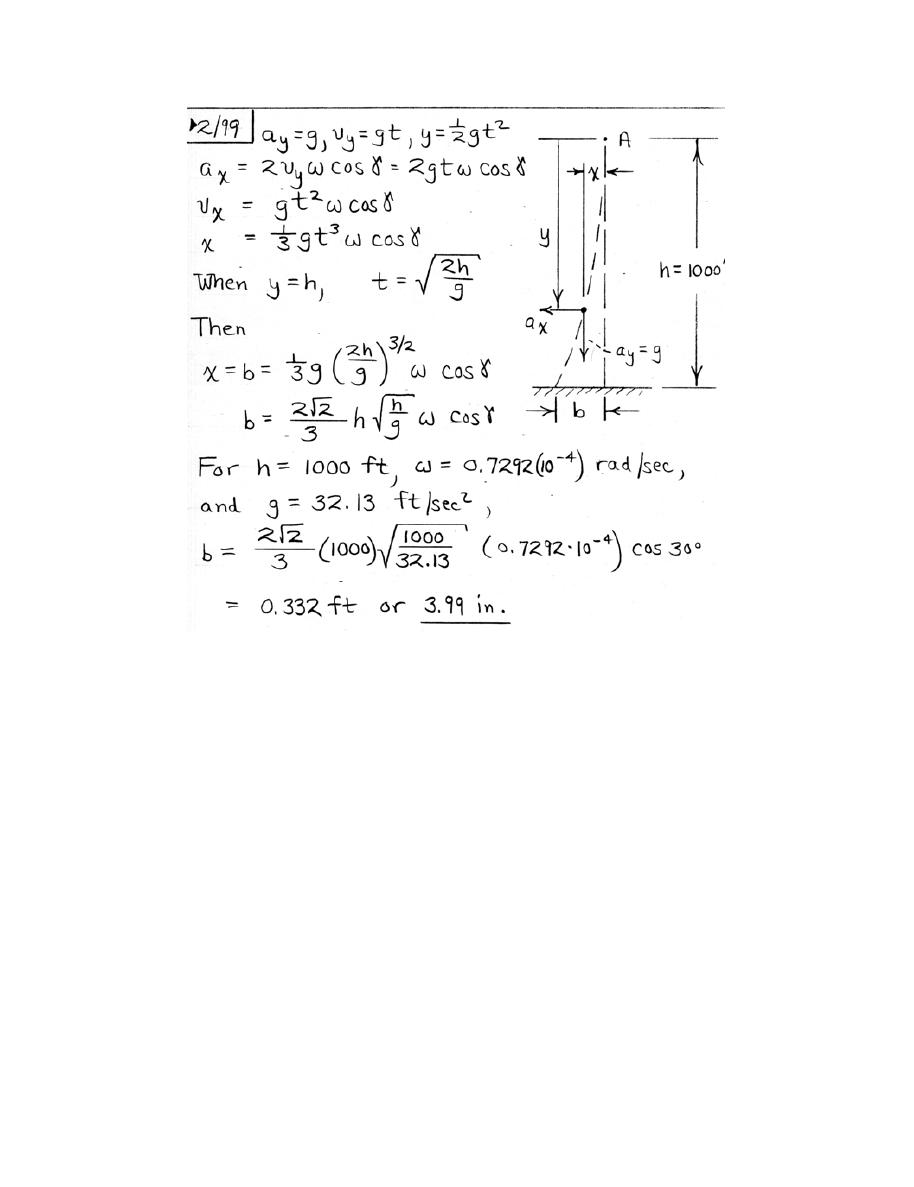 ▸2/99 a_y = g, v_y = gt, y = ½gt²
a_x = 2v_y ω cos γ = 2gtω cos γ
v_x = gt² ω cos γ
x = ⅓gt³ ω cos γ
When y = h, t = √(2h/g)
Then
x = b = ⅓g (2h/g)^(3/2) ω cos γ
b = (2√2/3) h √(h/g) ω cos γ
For h = 1000 ft, ω = 0.7292(10⁻⁴) rad/sec,
and g = 32.13 ft/sec²,
b = (2√2/3) (1000) √(1000/32.13) (0.7292·10⁻⁴) cos 30°
= 0.332 ft or 3.99 in.
A
x
y
h = 1000'
a_x
a_y = g
b